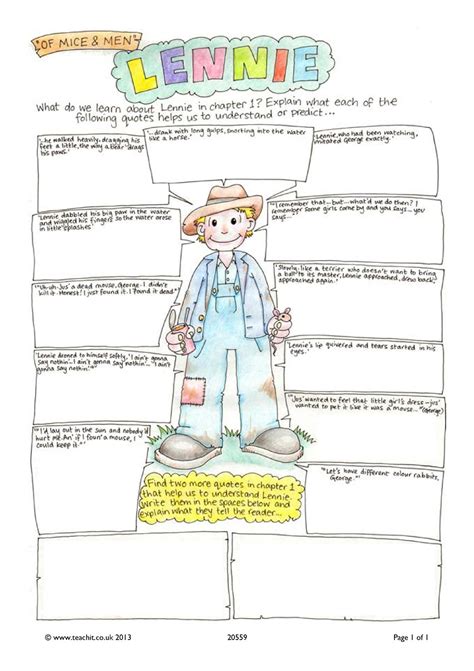 "OF MICE & MEN"
LENNIE
What do we learn about Lennie in chapter 1? Explain what each of the
following quotes helps us to understand or predict...
'...he walked heavily, dragging his
feet a little, the way a bear drags
his paws.'
'...drank with long gulps, snorting into the water
like a horse.'
'Lennie, who had been watching,
imitated George exactly.'
'Lennie dabbled his big paw in the water
and wiggled his fingers so the water arose
in little splashes'
'"I remember that—but...what'd we do then? I
remember some girls come by and you says...you
says..."'
'"Uh-uh. Jus' a dead mouse, George. I didn't
kill it. Honest! I just found it. I found it dead"'
'Slowly, like a terrier who doesn't want to bring
a ball to its master, Lennie approached, drew back,
approached again.'
'Lennie droned to himself softly, "I ain't gonna
say nothin'...I ain't gonna say nothin'..."I ain't
gonna say nothin'."'
'Lennie's lip quivered and tears started in his
eyes.'
'"Jus' wanted to feel that little girl's dress—jus'
wanted to pet it like it was a mouse..." (George)
'"I'd lay out in the sun and nobody'd
hurt me. An' if I foun' a mouse, I
could keep it."'
'"Let's have different colour rabbits,
George."'
Find two more quotes in chapter 1
that help us to understand Lennie.
Write them in the spaces below and
explain what they tell the reader...
© www.teachit.co.uk 2013
20559
Page 1 of 1